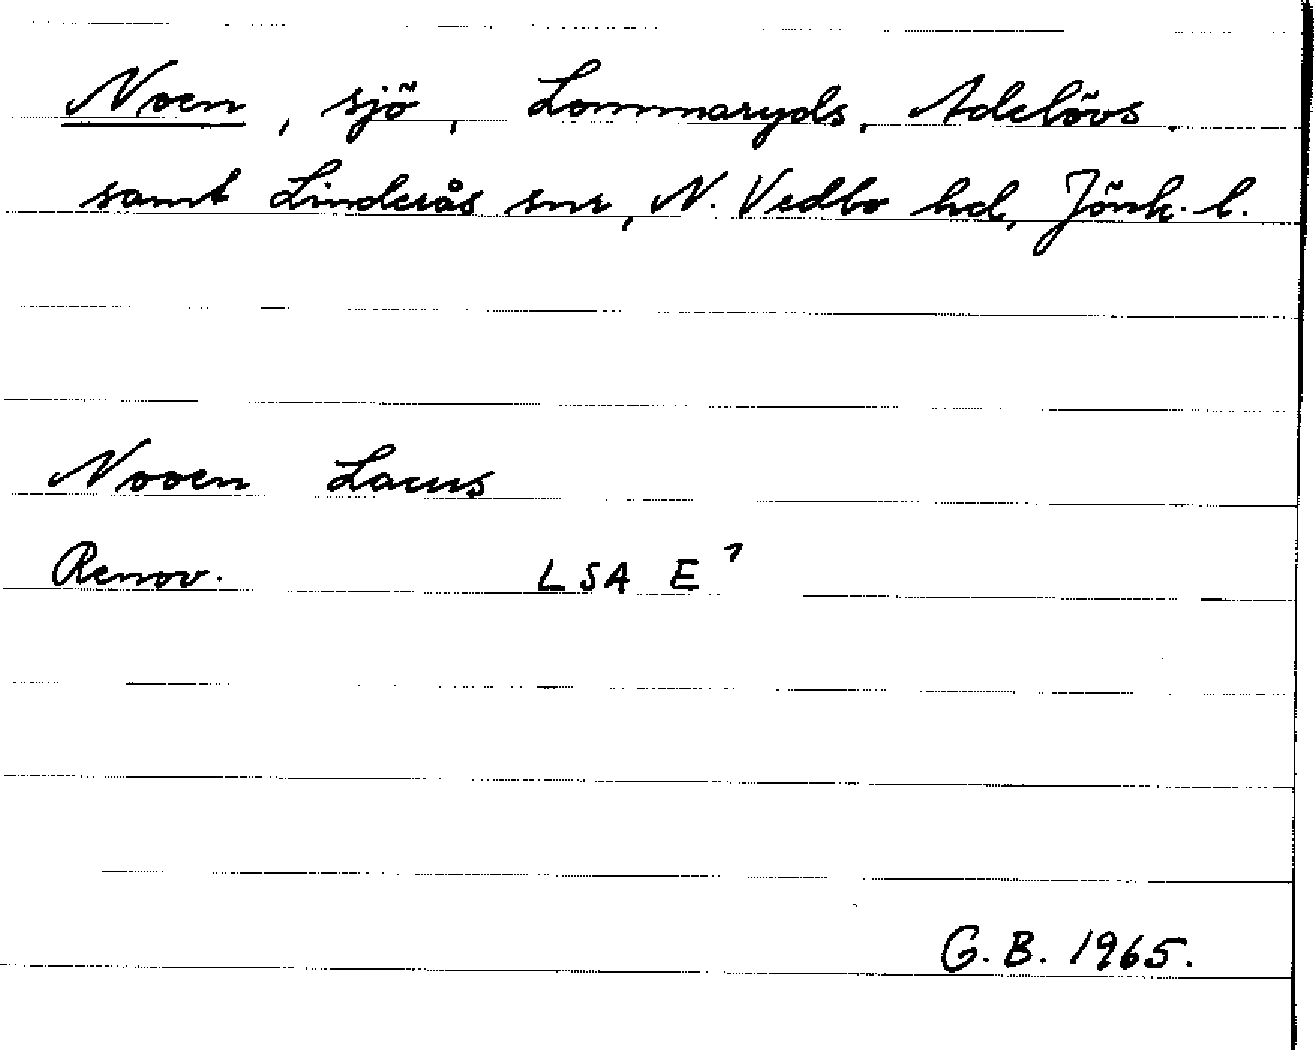 Noen, sjö, Lommaryds, Adelövs
samt Linderås snr, N. Vedbo hd, Jönk. l.
Nooen Lacus
Renov. LSA E⁷
G. B. 1965.